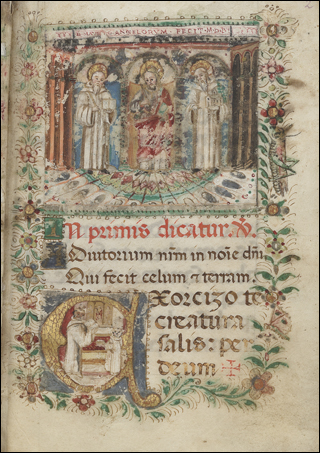 ANNELORUM FECIT
In primis dicatur. ℣.
Adiutorium nr̄m in noīe dn̄i
Qui fecit celum ⁊ terram.
Exorcizo te
creatura
salis: per
deum ✠